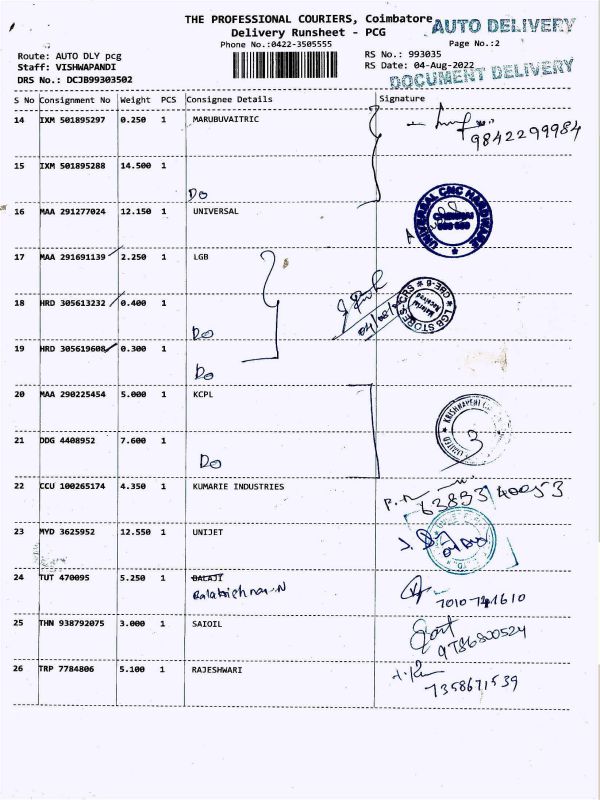 THE PROFESSIONAL COURIERS, Coimbatore
AUTO DELIVERY
Delivery Runsheet - PCG
Phone No.:0422-3505555
Page No.:2
Route: AUTO DLY pcg
RS No.: 993035
Staff: VISHWAPANDI
RS Date: 04-Aug-2022
DRS No.: DCJB99303502
DOCUMENT DELIVERY
S No Consignment No Weight PCS Consignee Details Signature
14 IXM 501895297 0.250 1 MARUBUVAITRIC
9842299984
15 IXM 501895288 14.500 1
Do
16 MAA 291277024 12.150 1 UNIVERSAL
UNIVERSAL CNC HARDWARE
CHENNAI
17 MAA 291691139 2.250 1 LGB
18 HRD 305613232 0.400 1
Do
LGB STORES-CRS
Material
Received
19 HRD 305619608 0.300 1
Do
20 MAA 290225454 5.000 1 KCPL
21 DDG 4408952 7.600 1
Do
LIMITED
3
22 CCU 100265174 4.350 1 KUMARIE INDUSTRIES
63893 40053
23 MYD 3625952 12.550 1 UNIJET
24 TUT 470095 5.250 1 BALAJI
Balakrishnan.N
25 THN 938792075 3.000 1 SAIOIL
9786800524
26 TRP 7784806 5.100 1 RAJESHWARI
7358671539